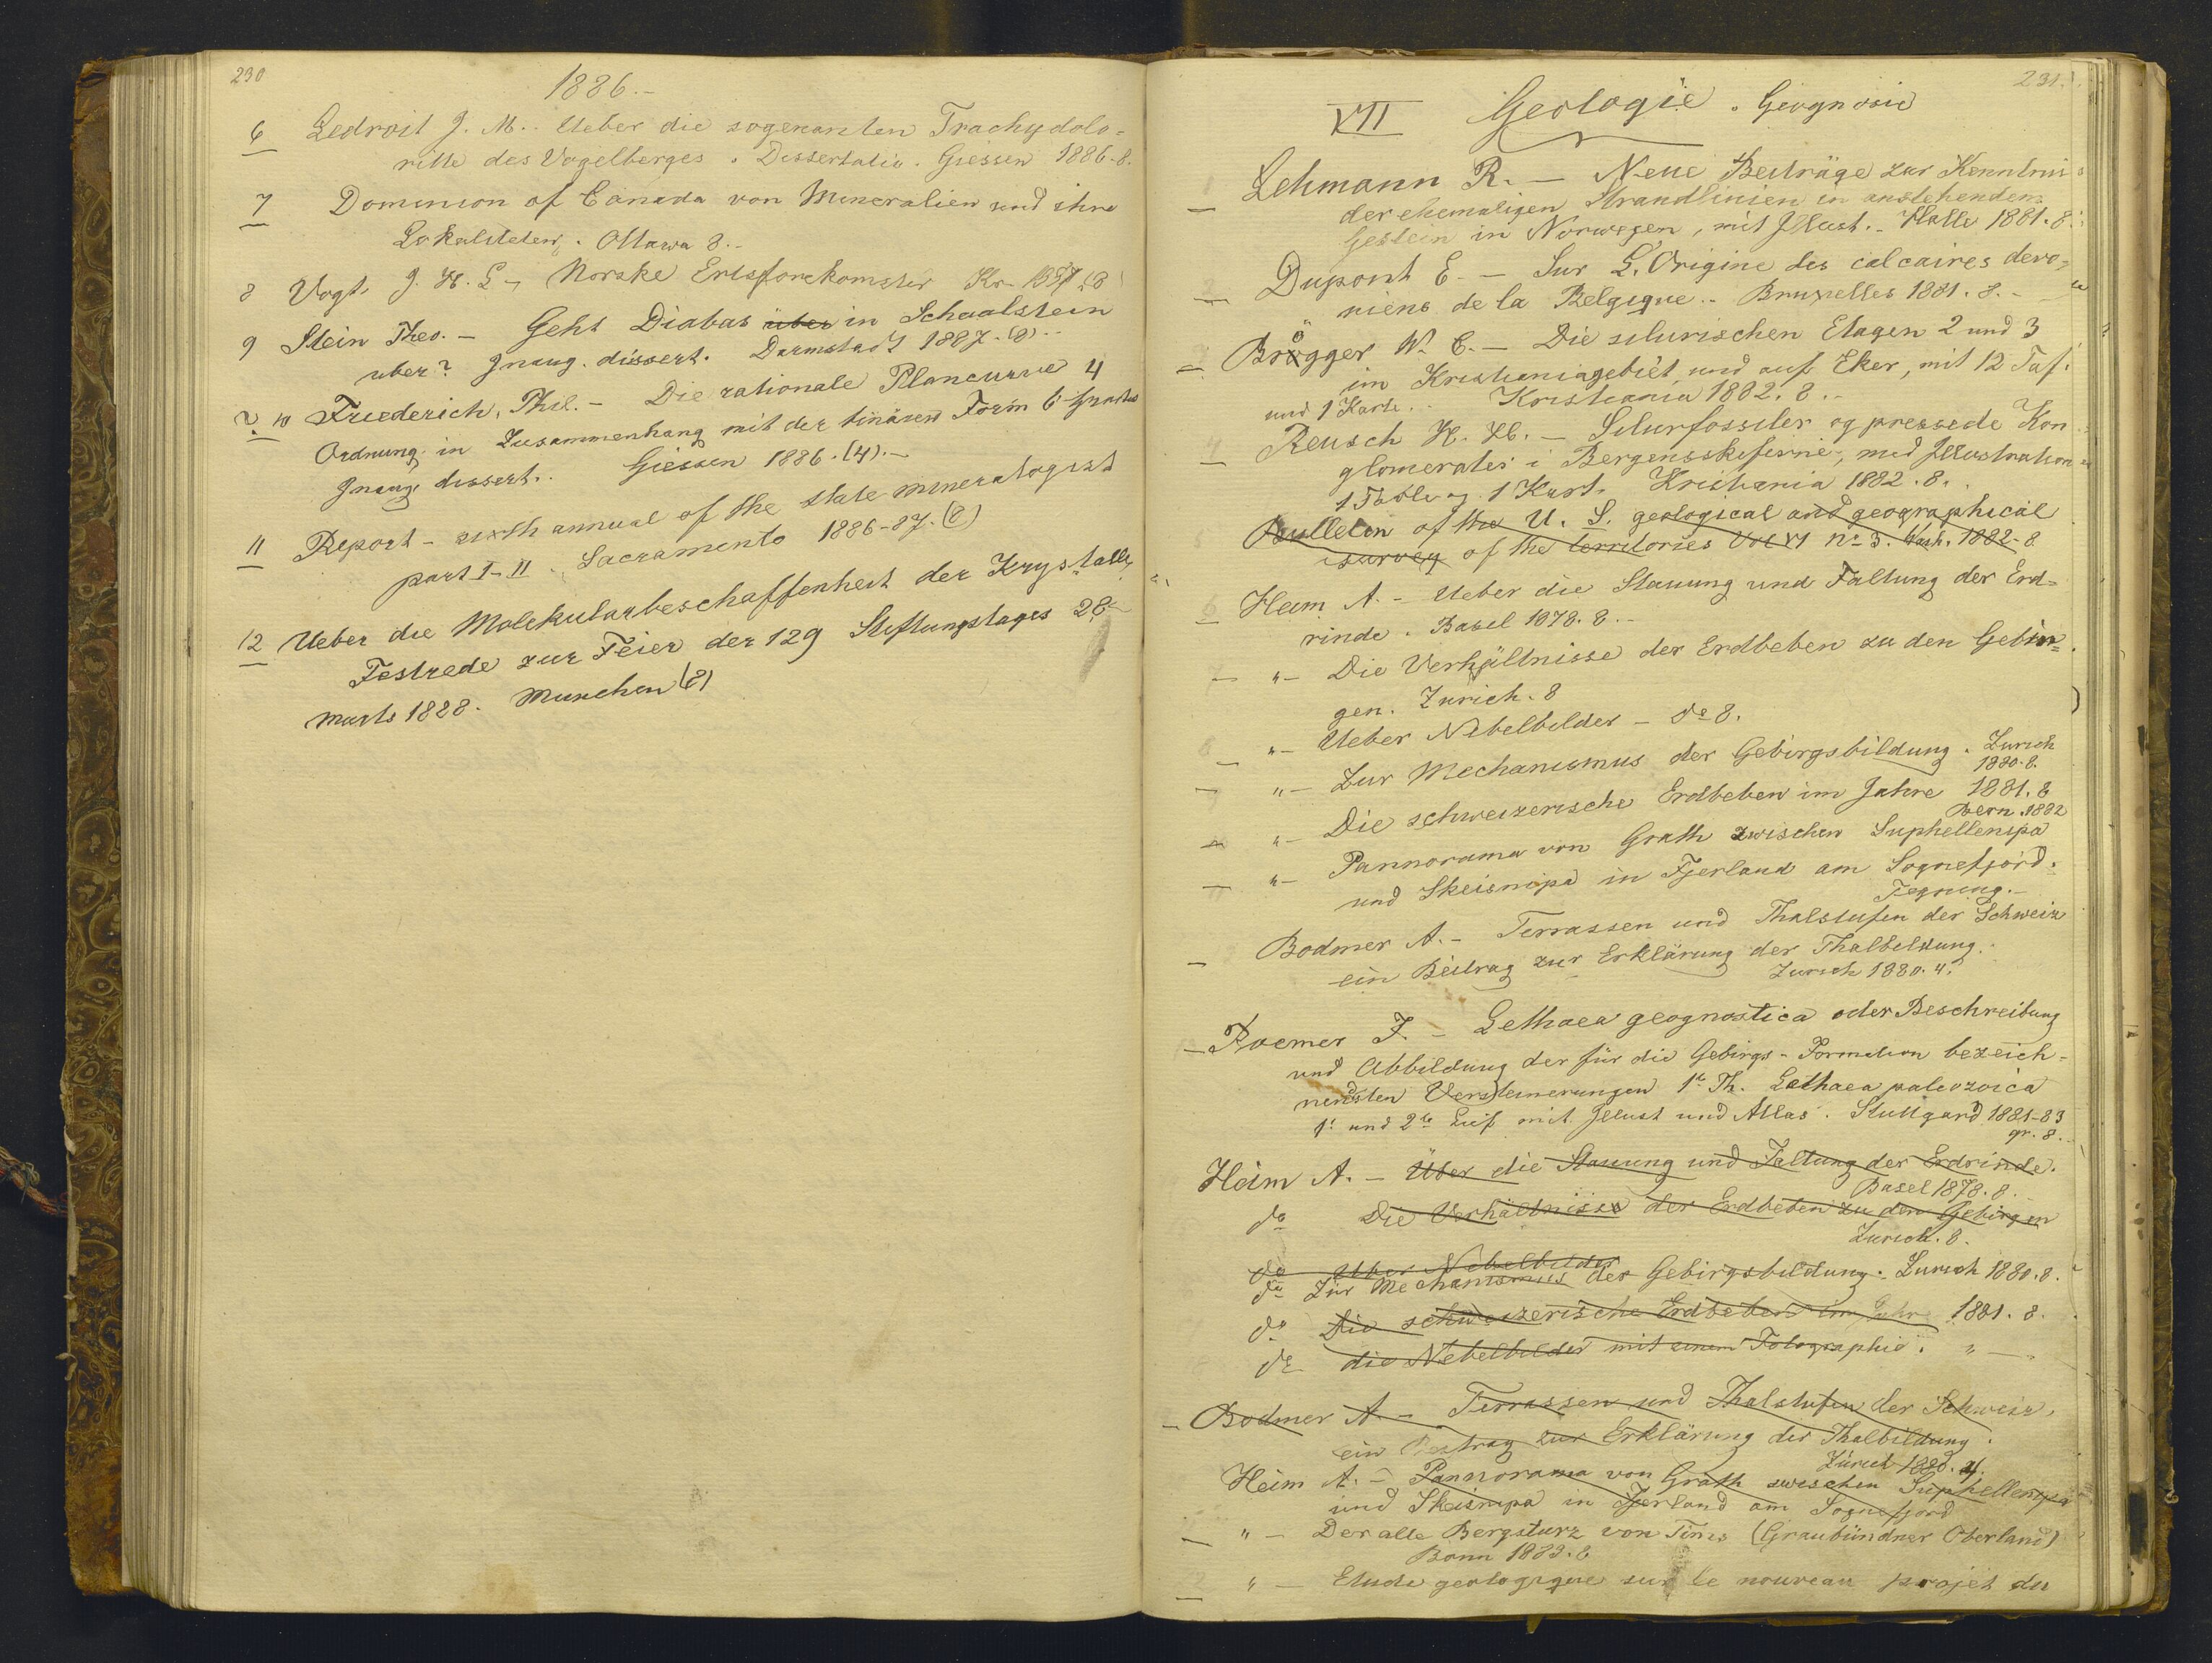 230
1886.-
6 Ledroit J. M.. Ueber die sogenanten Trachydolo=
ritte des Vogelberges. Dissertatio. Giessen 1886-8.
7 Dominion of Canada von Mineralien und ihre
Lokalsteten. Ottawa 8.-
8 Vogt, J. H. L-, Norske Ertsforekomster Kr. 1887
9 Stein Theo. - Geht Diabas uber in Schaalstein
uber? Jnaug. dissert. Darmstadt 1887-(8).-
? 10 Friederich, Phil. - Die rationale Plancurve 4
Ordnung in Zusammenhang mit der binären Form 6
Jnaug. dissert.. Giessen 1886.(4).-
11 Report - sixth annual of the state mineralogist
part I-II. Sacramento 1886-87.(8)
12 Ueber die Molekularbeschaffenheit der Krystalle,
Festrede zur Feier der 129 Stiftungstages 28
Marts 1888. Munchen (8)
231.
VII Geologie. Geognosie
1 Lehmann R. - Neue Beiträge zur Kenntnis
der ehemaligen Strandlinien in anstehendem
Gestein in Norwegen, mit Jllust.- Halle 1881.8.
Dupont E. - Sur L'Origine des calcaires devo=
niens de la Belgique.- Bruxelles 1881.8.-
Brögger W. C. - Die silurischen Etagen 2 und 3
im Kristianiagebiet und auf Eker, mit 12 Taf.
und 1 Karte.. Kristiania 1882.8.-
4 Reusch H. H. - Silurfossiler og pressede Kon
glomerater i Bergensskiferne, med Jllustration
1 Table og 1 Kart. Kristiania 1882.8.
5 Bulletin of the U. S. geological and geographical
survey of the territories Vol VI No 3. Wash. 1882-8
6 Heim A. - Ueber die Stauung und Faltung der Erd=
rinde. Basel 1878.8.-
7 "- Die Verhältnisse der Erdbeben zu den Gebir=
gen. Zurich.8
8 "- Ueber Nebelbilder - do 8.
"- Zur Mechanismus der Gebirgsbildung. Zurich
1880.8.
"- Die schweizerische Erdbeben im Jahre 1881.8
Bern.1882
"- Pannorama von Grath zwischen Suphellenipa
und Skeisnipa in Fjerland am Sognefjord.
Tegning.-
Bodmer A. - Terrassen und Thalstufen der Schweiz
ein Beitrag zur Erklärung der Thalbildung.
Zurich 1880.4.
Roemer F. - Lethaea geognostica oder Beschreibung
und Abbildung der für die Gebirgs-Formation bezeich-
nendsten Versteinerungen 1e Th. Lethaea paleozoica
1e und 2te Lief mit Jllust und Atlas. Stuttgard 1881-83
gr. 8.
Heim A. - Über die Stauung und Faltung der Erdrinde.
Basel 1878.8.
do Die Verhältnisse der Erdbeben zu den Gebirgen
Zurich.8.
do Uber Nebelbilder
do Zur Mechanismus der Gebirgsbildung. Zurich 1880.8.
do Die schweizerische Erdbeben im Jahre 1881.8.
do die Nebelbilder mit einem Fotographie. "
Bodmer A. - Terrassen und Thalstufen der Schweiz,
ein Beitrag zur Erklärung der Thalbildung.
Zürich 1880.4.
Heim A. - Pannorama von Grath zwischen Suphellenipa
und Skeisnipa in Fjerland am Sognefjord
"- Der alte Bergsturz von Flims (Graubündner Oberland)
Bonn 1883.8
"- Etude geologique sur le nouveau projet du